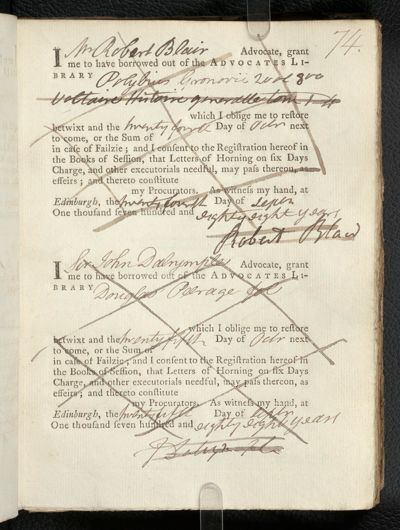 74.
I Mr Robert Blair Advocate, grant
me to have borrowed out of the ADVOCATES LI-
BRARY Polybius Gronovii 2 vol 8vo
Voltaire Histoire generalle tom 1-4
which I oblige me to reſtore
betwixt and the twenty fourth Day of Octr next
to come, or the Sum of
in caſe of Failzie; and I conſent to the Regiſtration hereof in
the Books of Seſſion, that Letters of Horning on ſix Days
Charge, and other executorials needful, may paſs thereon, as
effeirs; and thereto conſtitute
my Procurators. As witneſs my hand, at
Edinburgh, the twenty fourth Day of Septr
One thouſand ſeven hundred and eighty eight years
Robert Blair
I Sir John Dalrymple Advocate, grant
me to have borrowed out of the ADVOCATES LI-
BRARY Douglas Peerage fol
which I oblige me to reſtore
betwixt and the twenty fifth Day of Octr next
to come, or the Sum of
in caſe of Failzie; and I conſent to the Regiſtration hereof in
the Books of Seſſion, that Letters of Horning on ſix Days
Charge, and other executorials needful, may paſs thereon, as
effeirs; and thereto conſtitute
my Procurators. As witneſs my hand, at
Edinburgh, the twenty fifth Day of Septr
One thouſand ſeven hundred and eighty eight years
J Dalrymple